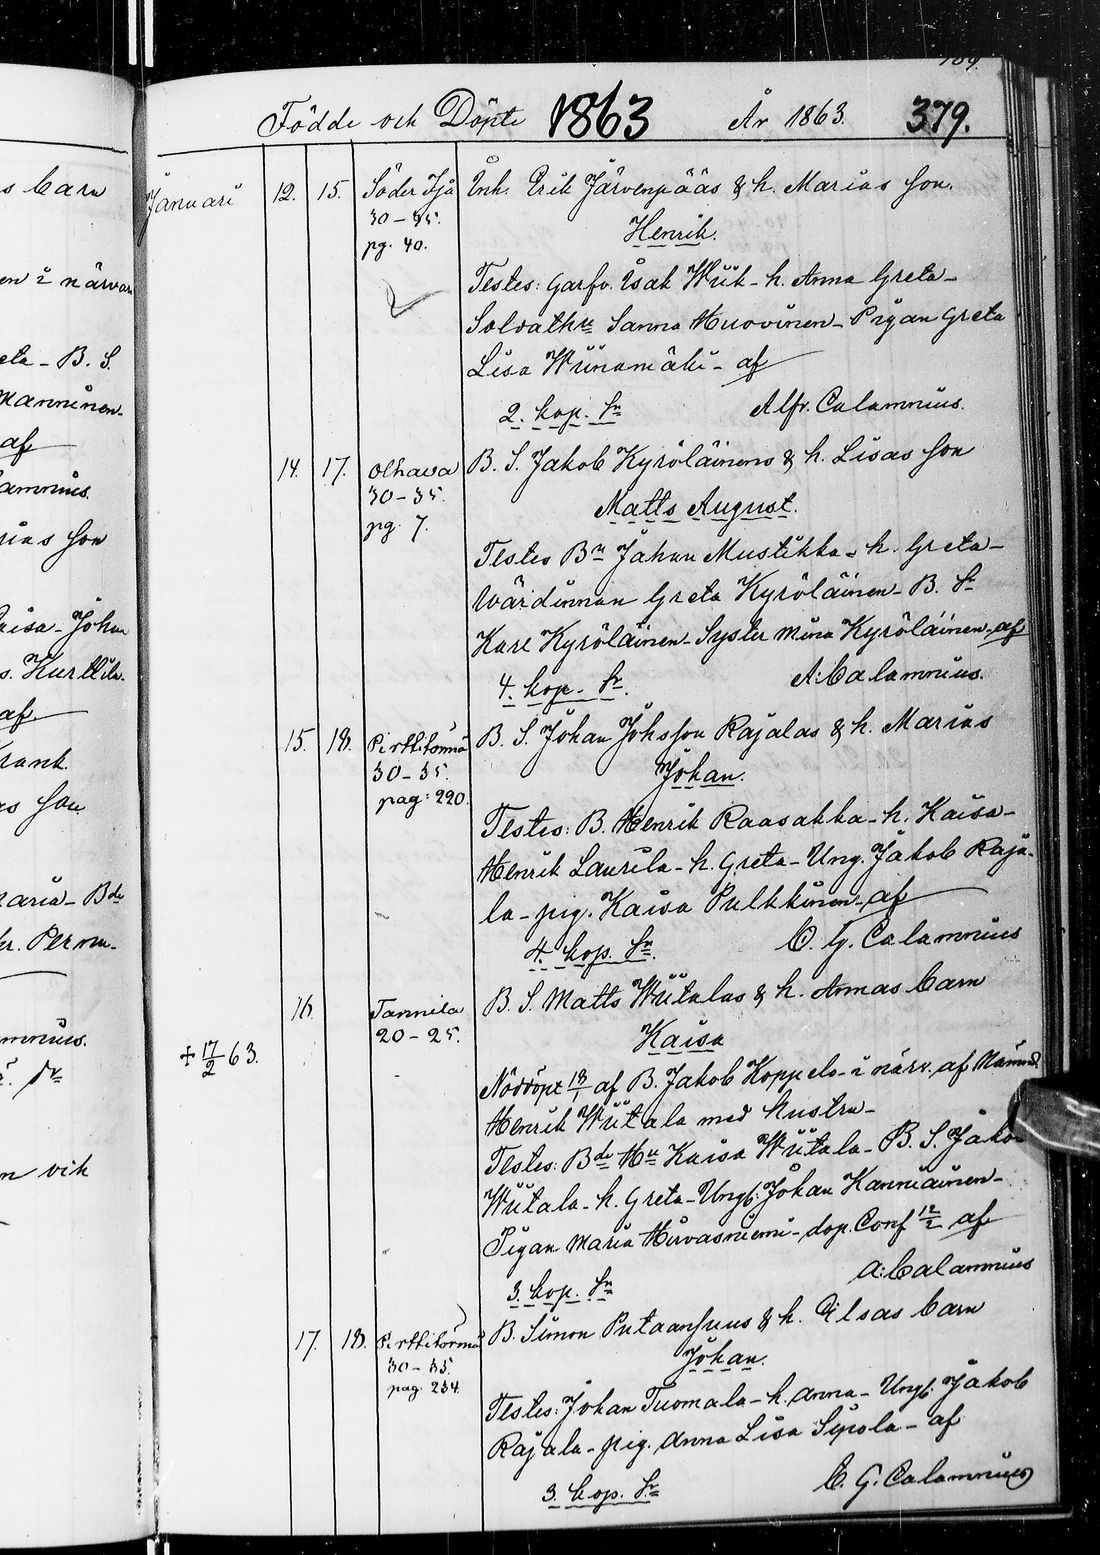 Födde och Döpte 1863 År 1863. 379.
s barn
en i närvar
eta - B. S.
Manninen-
af
lamnius.
rias son
aisa - Johan
s. Kurttila.
af
son
aria - Bde
mnius.
n vik
Januari 12. 15. Söder Ijå Inh. Erik Järvenpääs & h. Marias son.
30-35. Henrik.
pg. 40.
Testes: Garfv. Isak Wiik - h. Anna Greta -
Soldathu Sanna Huovinen - Pigan Greta
Lisa Wiinamäki - af
2. kop. Sr Alfr. Calamnius.
14. 17. Olhava B. S. Jakob Kyröläinens & h. Lisas son
30-35. Matts August.
pg. 7.
Testes Bn Johan Mustikka - h. Greta -
Wärdinnan Greta Kyröläinen - B. Sr
Karl Kyröläinen - Syster Mina Kyröläinen - af
4. kop. Sr. A: Calamnius.
15. 18. Pirttitörmä B. S. Johan Johsson Rajalas & h. Marias
30-35. Johan.
pag: 290.
Testes: B. Henrik Raasakka - h. Kaisa -
Henrik Laurila - h. Greta - Ung. Jakob Raja-
la - pig. Kaisa Pulkkinen - af
4. kop. Sr. C. G. Calamnius
16. Tannila B. S. Matts Wiitalas & h. Annas barn
20-25. Kaisa
+ 17/2 63.
Nöddöpt 18/1 af B. Jakob Koppelo - i närv. af Nämnd.
Henrik Wiitala med hustru -
Testes: Bde Hu Kaisa Wiitala - B. S. Jakob
Wiitala - h. Greta - Ungk: Johan Kanniainen -
Pigan Maria Hirvasniemi - dop. Conf 12/2 af
3. kop. Sr A: Calamnius
17. 18. Pirttitörmä B. Simon Putaansuus & h. Elsas barn
30-35. Johan.
pag. 234.
Testes: Johan Tuomala - h. Anna - Ungk: Jakob
Rajala - pig. Anna Lisa Sipola - af
3. kop. Sr C. G. Calamnius